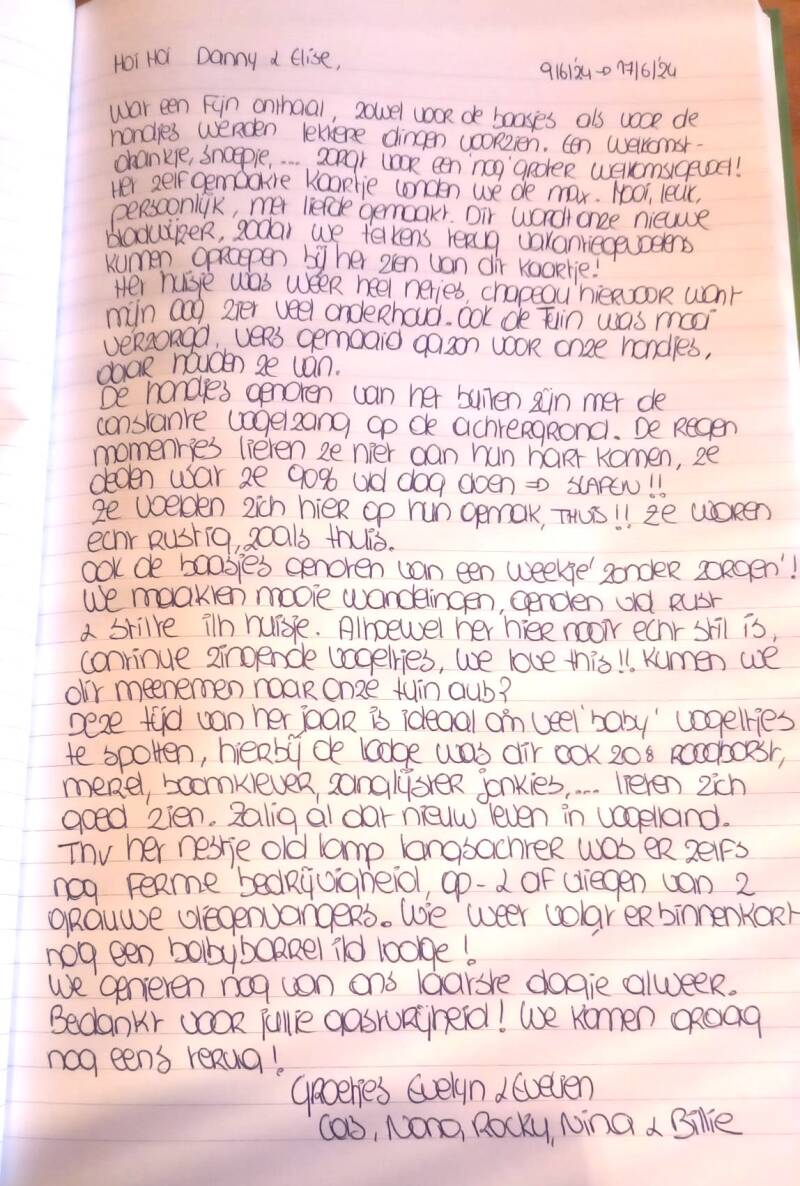 Hoi Hoi Danny & Elise,
9/6/'24 → 17/6/'24
Wat een fijn onthaal, zowel voor de baasjes als voor de
hondjes werden lekkere dingen voorzien. Een welkomst-
drankje, snoepje, .... zorgt voor een 'nog' groter welkomstgevoel!
Het zelfgemaakte kaartje vonden we de max. Mooi, leuk,
persoonlijk, met liefde gemaakt. Dit wordt onze nieuwe
bladwijzer, zodat we telkens terug vakantiegevoelens
kunnen oproepen bij het zien van dit kaartje!
Het huisje was weer heel netjes, chapeau hiervoor want
mijn oog ziet veel onderhoud. Ook de tuin was mooi
verzorgd, vers gemaaid gazon voor onze hondjes,
daar houden ze van.
De hondjes genoten van het buiten zijn met de
constante vogelzang op de achtergrond. De regen
momentjes lieten ze niet aan hun hart komen, ze
deden wat ze 90% v/d dag doen ⇒ SLAPEN!!
Ze voelden zich hier op hun gemak, THUIS!! Ze waren
echt rustig, zoals thuis.
Ook de baasjes genoten van een weekje 'zonder zorgen'!
We maakten mooie wandelingen, genoten v/d rust
& stilte i/h huisje. Alhoewel het hier nooit echt stil is,
continue zingende vogeltjes, we love this!! Kunnen we
dit meenemen naar onze tuin aub?
Deze tijd van het jaar is ideaal om veel 'baby' vogeltjes
te spotten, hierbij de lodge was dit ook zo: roodborst,
merel, boomklever, zanglijster jonkies, .... lieten zich
goed zien. Zalig al dat nieuw leven in vogelland.
Thv het nestje o/d lamp langsachter was er zelfs
nog ferme bedrijvigheid, op- & afvliegen van 2
grauwe vliegenvangers. Wie weet volgt er binnenkort
nog een babyborrel i/d lodge!
We genieten nog van ons laatste dagje alweer.
Bedankt voor jullie gastvrijheid! We komen graag
nog eens terug!
Groetjes Evelyn & Evelien
Cas, Nana, Rocky, Nina & Billie